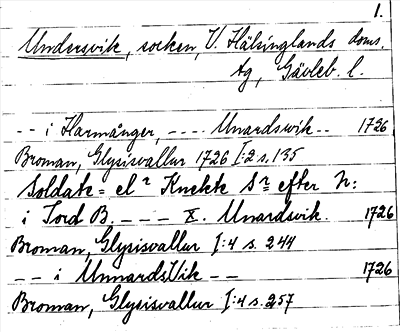 1.
Undersvik, socken, V. Hälsinglands doms.
tg, Gävleb. l.
-- i Harmånger, ---- Unardswik -- 1726
Broman, Glysisvallur 1726 I:2 s. 135
Soldate= el r Knekte Sr efter N:
i Tord B. --- X. Unardsvik. 1726
Broman, Glysisvallur I:4 s. 244
-- i UnnardsVik -- 1726
Broman, Glysisvallur I:4 s. 257